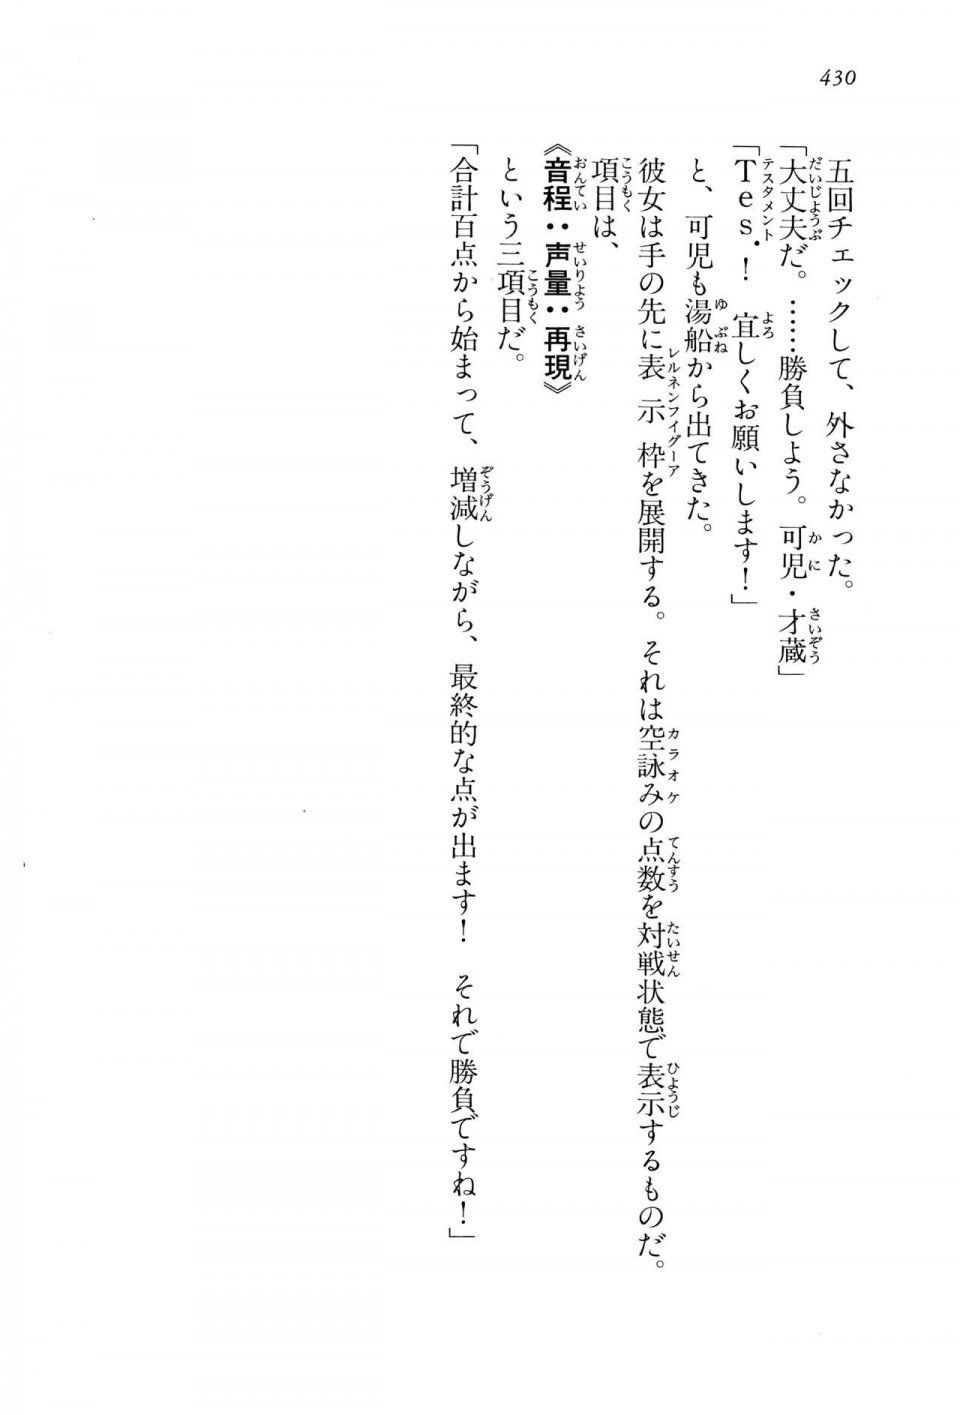 430
五回チェックして、外さなかった。
「大丈夫だ。……勝負しよう。可児・才蔵」
「Tes.！　宜しくお願いします！」
と、可児も湯船から出てきた。
彼女は手の先に表示枠を展開する。それは空詠みの点数を対戦状態で表示するものだ。
項目は、
《音程：声量：再現》
という三項目だ。
「合計百点から始まって、増減しながら、最終的な点が出ます！　それで勝負ですね！」